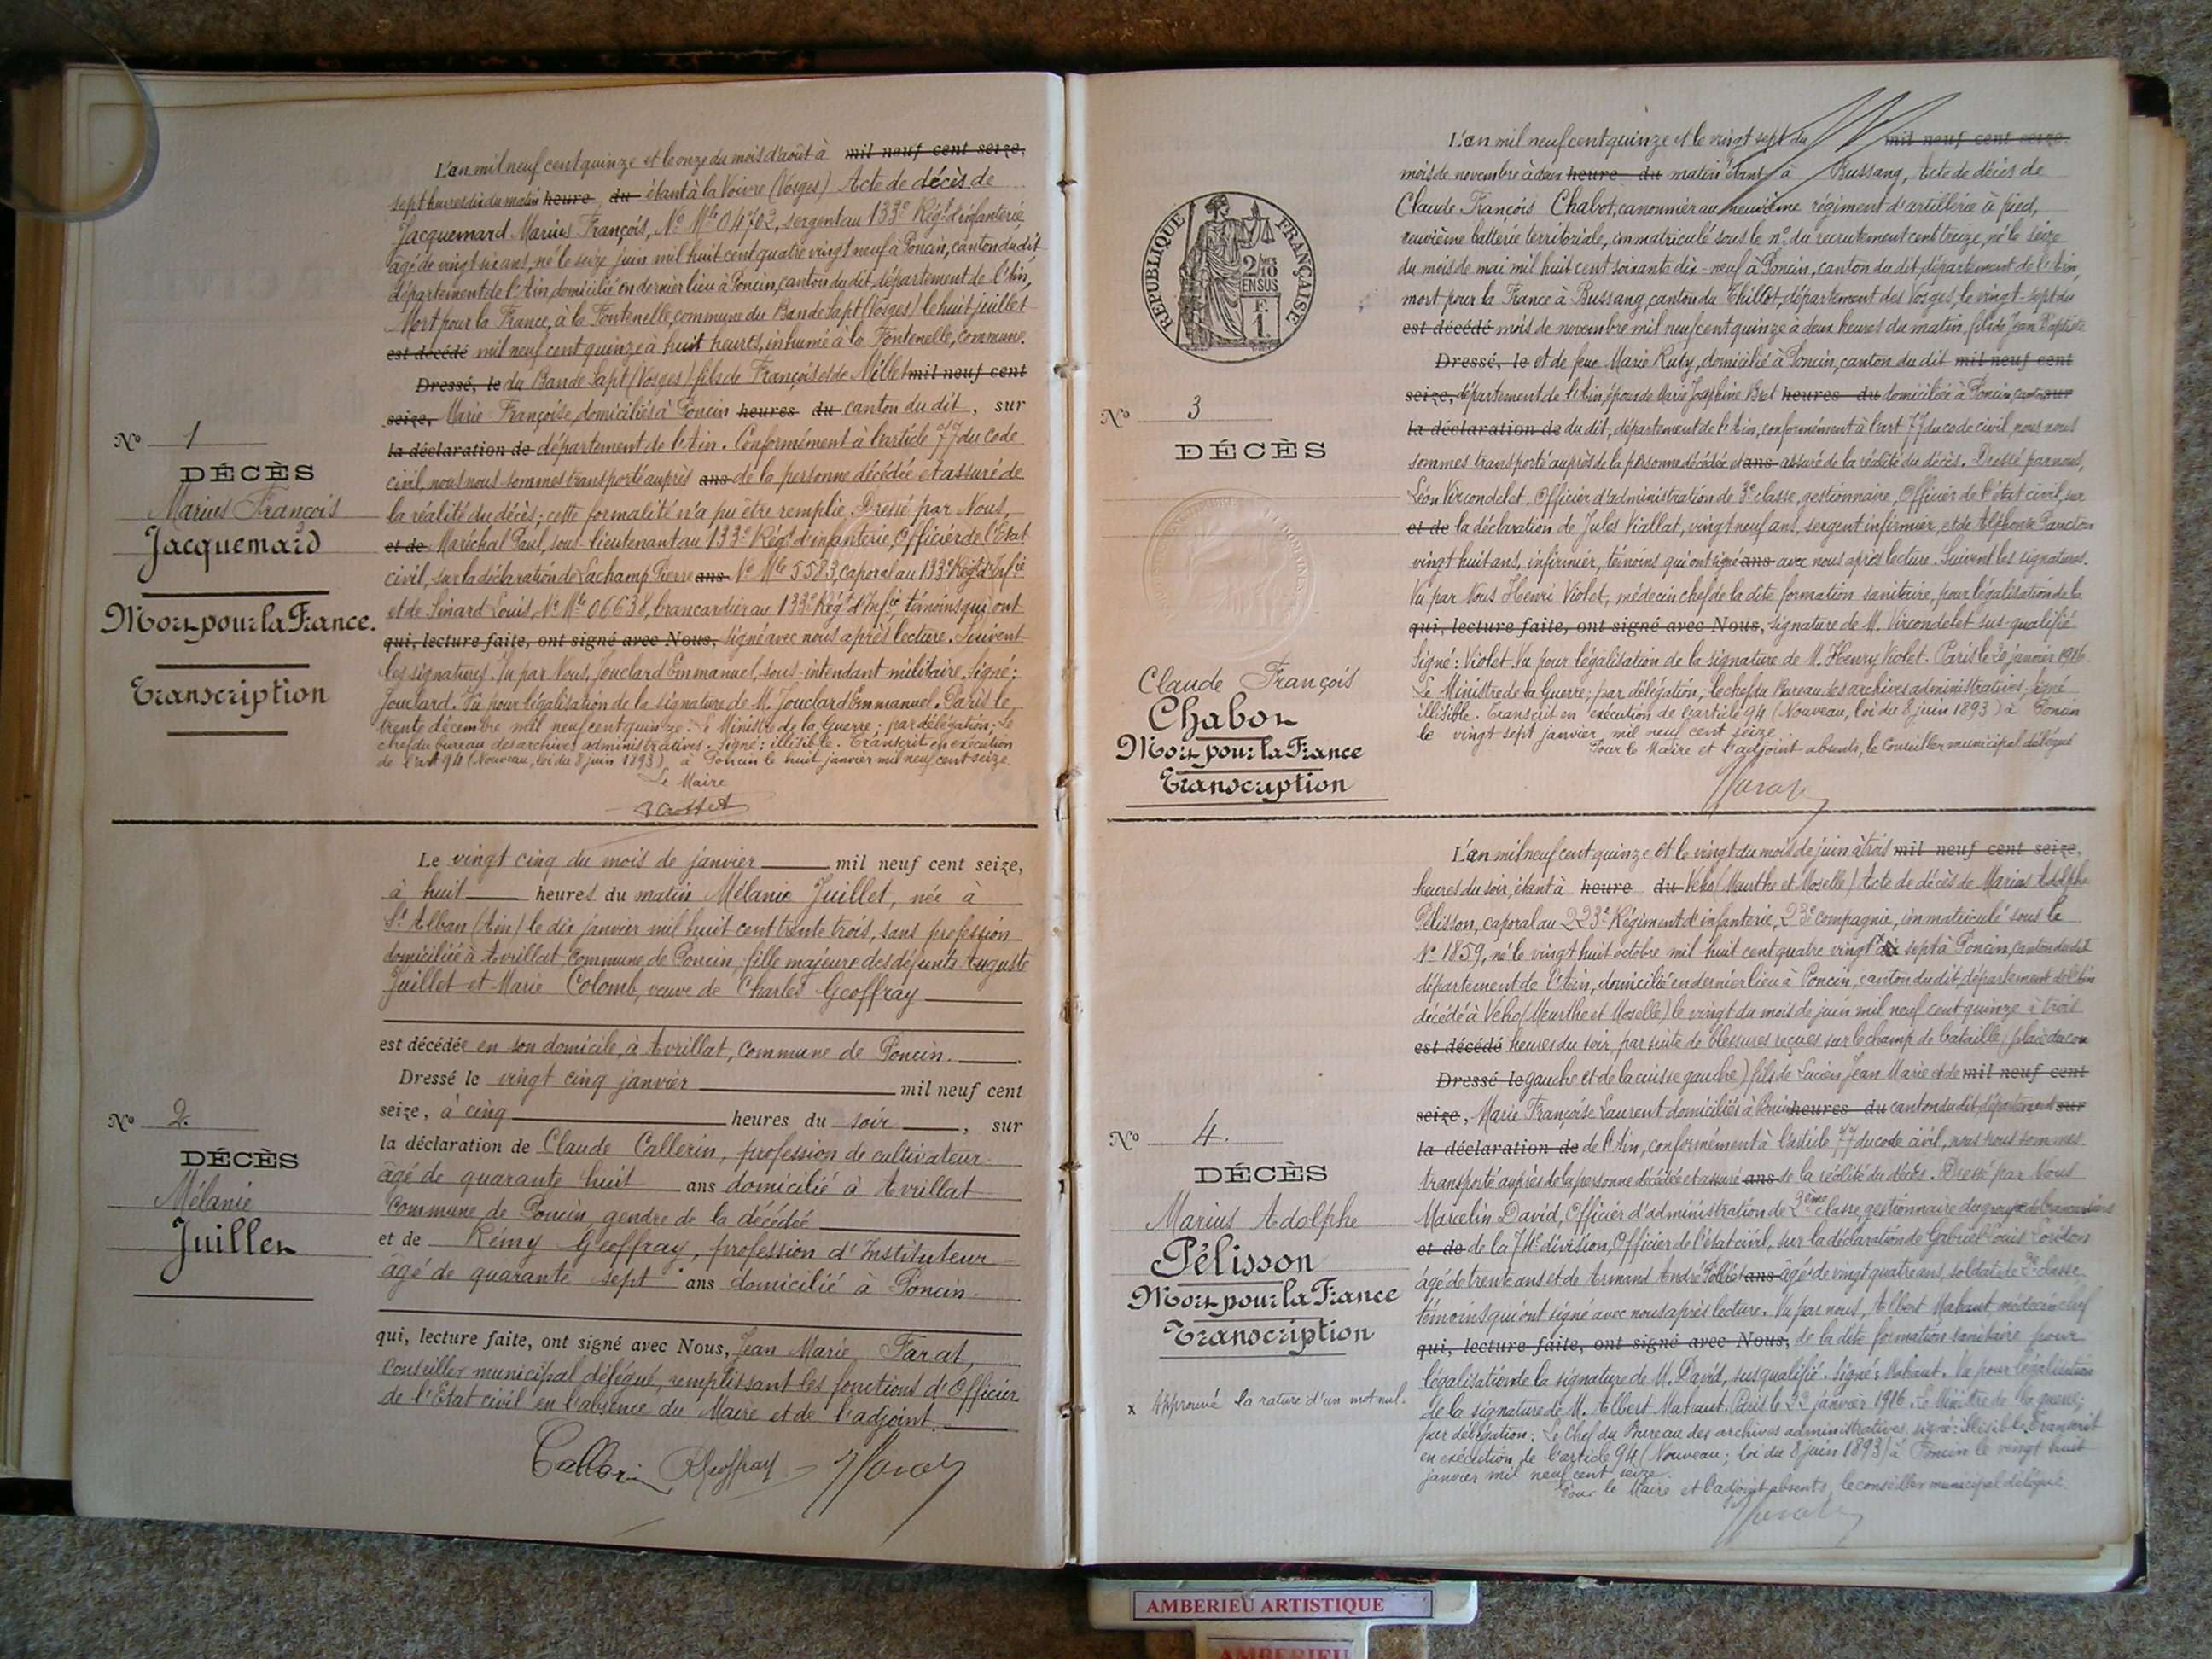 L'an mil neuf cent quinze et le onze du mois d'août à mil neuf cent seize,
sept heures dix du matin heure du étant à la Voivre (Vosges) Acte de décès de
Jacquemard Marius François, No Mle 04702, sergent au 133e Régt d'infanterie,
âgé de vingt six ans, né le seize juin mil huit cent quatre vingt neuf à Poncin, canton du dit
département de l'Ain, domicilié en dernier lieu à Poncin, canton du dit, département de l'Ain,
Mort pour la France, à la Fontenelle, commune du Ban de Sapt (Vosges) le huit juillet
est décédé mil neuf cent quinze à huit heures, inhumé à la Fontenelle, commune
Dressé, le du Ban de Sapt (Vosges) fils de François et de Millet mil neuf cent
seize, Marie Françoise, domiciliés à Poncin heures du canton du dit, sur
la déclaration de département de l'Ain. Conformément à l'article 77 du code
civil, nous nous sommes transporté auprès ans de la personne décédée et assuré de
la réalité du décès; cette formalité n'a pu être remplie. Dressé par Nous,
et de Maréchal Paul, sous-lieutenant au 133e Régt d'infanterie, Officier de l'Etat
civil, sur la déclaration de Lachamp Pierre ans No Mle 5583, caporal au 133e Régt d'Infie
et de Sinard Louis, No Mle 06638, brancardier au 133e Régt d'Infie témoins qui ont
qui, lecture faite, ont signé avec Nous, signé avec nous après lecture. Suivent
les signatures. Vu par Nous, Jouclard Emmanuel, sous-intendant militaire. Signé:
Jouclard. Vu pour légalisation de la signature de M. Jouclard Emmanuel. Paris le
trente décembre mil neuf cent quinze. Le Ministre de la Guerre; par délégation; Le
chef du bureau des archives administratives. Signé: illisible. Transcrit en exécution
de l'art 94 (Nouveau, loi du 8 juin 1893) à Poncin le huit janvier mil neuf cent seize.
Le Maire
No 1
DÉCÈS
Marius François
Jacquemard
Mort pour la France.
Transcription
Le vingt cinq du mois de janvier mil neuf cent seize,
à huit heures du matin Mélanie Juillet, née à
St Alban (Ain) le dix janvier mil huit cent trente trois, sans profession
domiciliée à Avrillat, commune de Poncin, fille majeure des défunts Auguste
Juillet et Marie Colomb, veuve de Charles Geoffray
est décédée en son domicile, à Avrillat, commune de Poncin.
Dressé le vingt cinq janvier mil neuf cent
seize, à cinq heures du soir, sur
la déclaration de Claude Callerin, profession de cultivateur
âgé de quarante huit ans domicilié à Avrillat
commune de Poncin, gendre de la décédée
et de Rémy Geoffray, profession d'Instituteur
âgé de quarante sept ans domicilié à Poncin.
qui, lecture faite, ont signé avec Nous, Jean Marie Farat,
conseiller municipal délégué, remplissant les fonctions d'Officier
de l'Etat civil en l'absence du Maire et de l'adjoint.
Callerin RGeoffray JFarat
No 2.
DÉCÈS
Mélanie
Juillet
L'an mil neuf cent quinze et le vingt sept du mil neuf cent seize.
mois de novembre à deux heure du matin étant à Bussang, Acte de décès de
Claude François Chabot, canonnier au neuvième régiment d'artillerie à pied,
neuvième batterie territoriale, immatriculé sous le no du recrutement cent treize, né le seize
du mois de mai mil huit cent soixante dix-neuf à Poncin, canton du dit, département de l'Ain,
mort pour la France à Bussang, canton du Thillot, département des Vosges, le vingt-sept du
est décédé mois de novembre mil neuf cent quinze à deux heures du matin, fils de Jean Baptiste
Dressé, le et de feue Marie Ruty, domicilié à Poncin, canton du dit mil neuf cent
seize, département de l'Ain, époux de Marie Joséphine Bret heures du domiciliée à Poncin, canton sur
la déclaration de du dit, département de l'Ain, conformément à l'art 77 du code civil, nous nous
sommes transporté auprès de la personne décédée et ans assuré de la réalité du décès. Dressé par nous,
Léon Vircondelet, Officier d'administration de 3e classe, gestionnaire, Officier de l'état civil, sur
et de la déclaration de Jules Viallat, vingt neuf ans, sergent infirmier, et de Alphonse
vingt huit ans, infirmier, témoins qui ont signé ans avec nous après lecture. Suivent les signatures.
Vu par Nous Henri Violet, médecin chef de la dite formation sanitaire, pour légalisation de la
qui, lecture faite, ont signé avec Nous, signature de M. Vircondelet sus-qualifié.
Signé: Violet. Vu pour légalisation de la signature de M. Henry Violet. Paris le 20 janvier 1916.
Le Ministre de la Guerre; par délégation; le chef du Bureau des archives administratives, signé
illisible. Transcrit en exécution de l'article 94 (Nouveau, loi du 8 juin 1893) à Poncin
le vingt sept janvier mil neuf cent seize.
Pour le Maire et l'adjoint absents, le Conseiller municipal délégué
JFarat
RÉPUBLIQUE FRANÇAISE
2/10
EN SUS
F.
1.
No 3
DÉCÈS
Claude François
Chabot
Mort pour la France
Transcription
L'an mil neuf cent quinze et le vingt du mois de juin à trois mil neuf cent seize,
heures du soir, étant à heure du Veho (Meurthe et Moselle) Acte de décès de Marius Adolphe
Pélisson, caporal au 223e Régiment d'infanterie, 23e compagnie, immatriculé sous le
No 1859, né le vingt huit octobre mil huit cent quatre vingt x sept à Poncin, canton du dit
département de l'Ain, domicilié en dernier lieu à Poncin, canton du dit, département de l'Ain
décédé à Veho (Meurthe et Moselle) le vingt du mois de juin mil neuf cent quinze à trois
est décédé heures du soir, par suite de blessures reçues sur le champ de bataille (plaie du cou
Dressé le gauche et de la cuisse gauche) fils de Jean Marie et de mil neuf cent
seize, Marie Françoise Laurent domiciliés à Poncin heures du canton du dit, département sur
la déclaration de de l'Ain, conformément à l'article 77 du code civil, nous nous sommes
transporté auprès de la personne décédée et assuré ans de la réalité du décès. Dressé par Nous
Marcelin David, Officier d'administration de 2ème classe, gestionnaire du groupe de brancardiers
et de de la 74e division, Officier de l'état civil, sur la déclaration de Gabriel Louis
âgé de trente ans et de Armand André ans âgé de vingt quatre ans, soldat de 2e classe
témoins qui ont signé avec nous après lecture. Vu par nous, Albert Mahaut médecin chef
qui, lecture faite, ont signé avec Nous, de la dite formation sanitaire pour
légalisation de la signature de M. David, sus qualifié. Signé: Mahaut. Vu pour légalisation
de la signature de M. Albert Mahaut. Paris le 22 janvier 1916. Le Ministre de la guerre;
par délégation; Le Chef du Bureau des archives administratives, signé: illisible. Transcrit
en exécution de l'article 94 (Nouveau; loi du 8 juin 1893) à Poncin le vingt huit
janvier mil neuf cent seize.
Pour le Maire et l'adjoint absents, le conseiller municipal délégué
JFarat
No 4.
DÉCÈS
Marius Adolphe
Pélisson
Mort pour la France
Transcription
x Approuvé la rature d'un mot nul.
AMBERIEU ARTISTIQUE
AMBERIEU